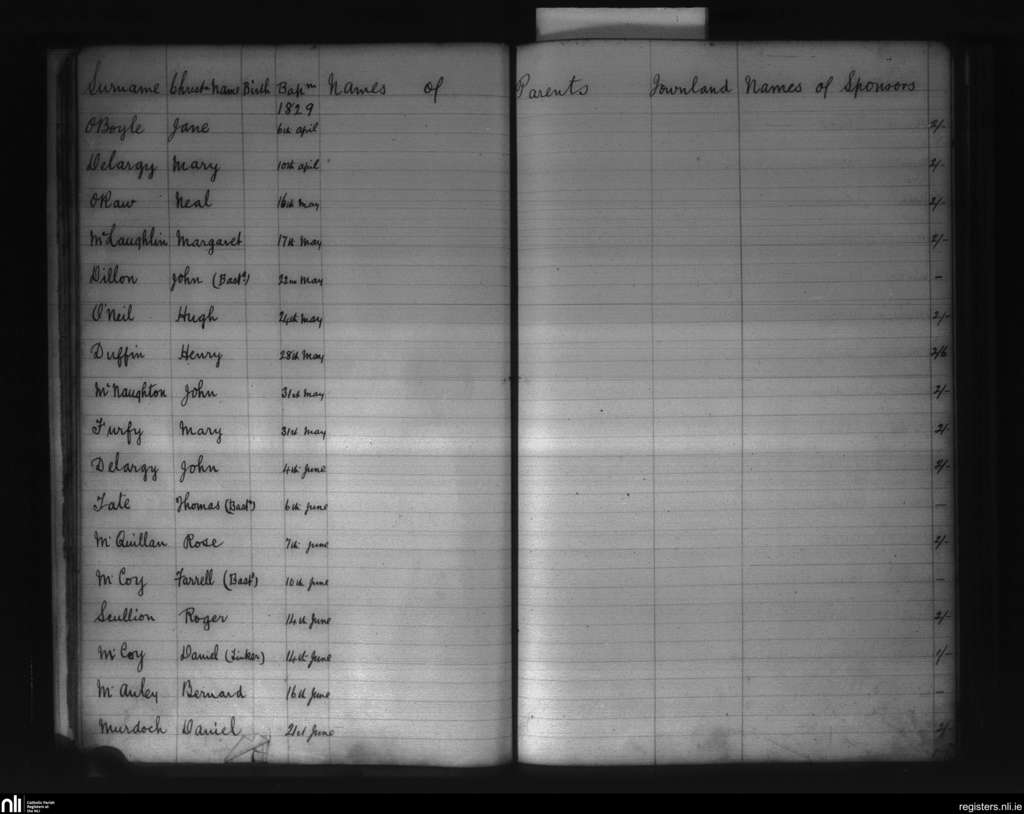 Surname Christ-Name Birth Bapm Names of Parents Townland Names of Sponsors
1829
O'Boyle Jane 6th april 2/-
Delargy Mary 10th april 2/-
O'Raw Neal 16th May 2/-
McLaughlin Margaret 17th May 2/-
Dillon John (Bastd) 22nd May -
O'Neil Hugh 24th May 2/-
Duffin Henry 28th May 2/6
McNaughton John 31st May 2/-
Furfy Mary 31st May 2/-
Delargy John 4th June 2/-
Tate Thomas (Bastd) 6th June -
McQuillan Rose 7th June 2/-
McCoy Farrell (Bastd) 10th June -
Scullion Roger 14th June 2/-
McCoy Daniel (Tinker) 14th June 1/-
McAuley Bernard 16th June -
Murdoch Daniel 21st June 2/
nli Catholic Parish
Registers at
the NLI
registers.nli.ie